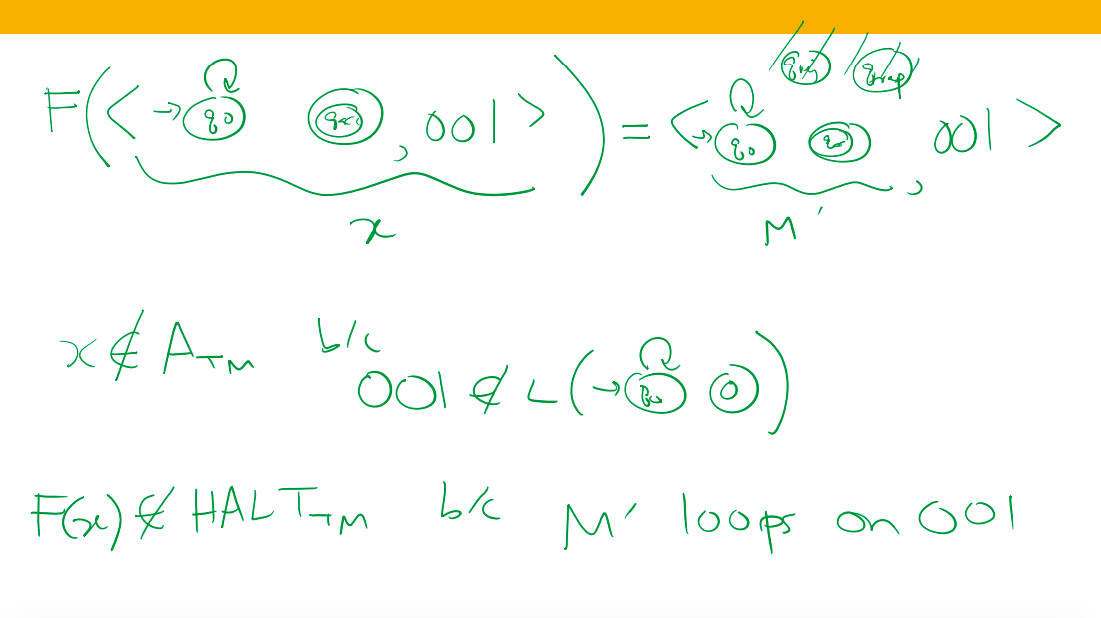 F(< → q0 qacc , 001 >) = < → q0 qacc , 001 >
x M'
x ∉ A_TM b/c 001 ∉ L(→ q0 )
F(x) ∉ HALT_TM b/c M' loops on 001